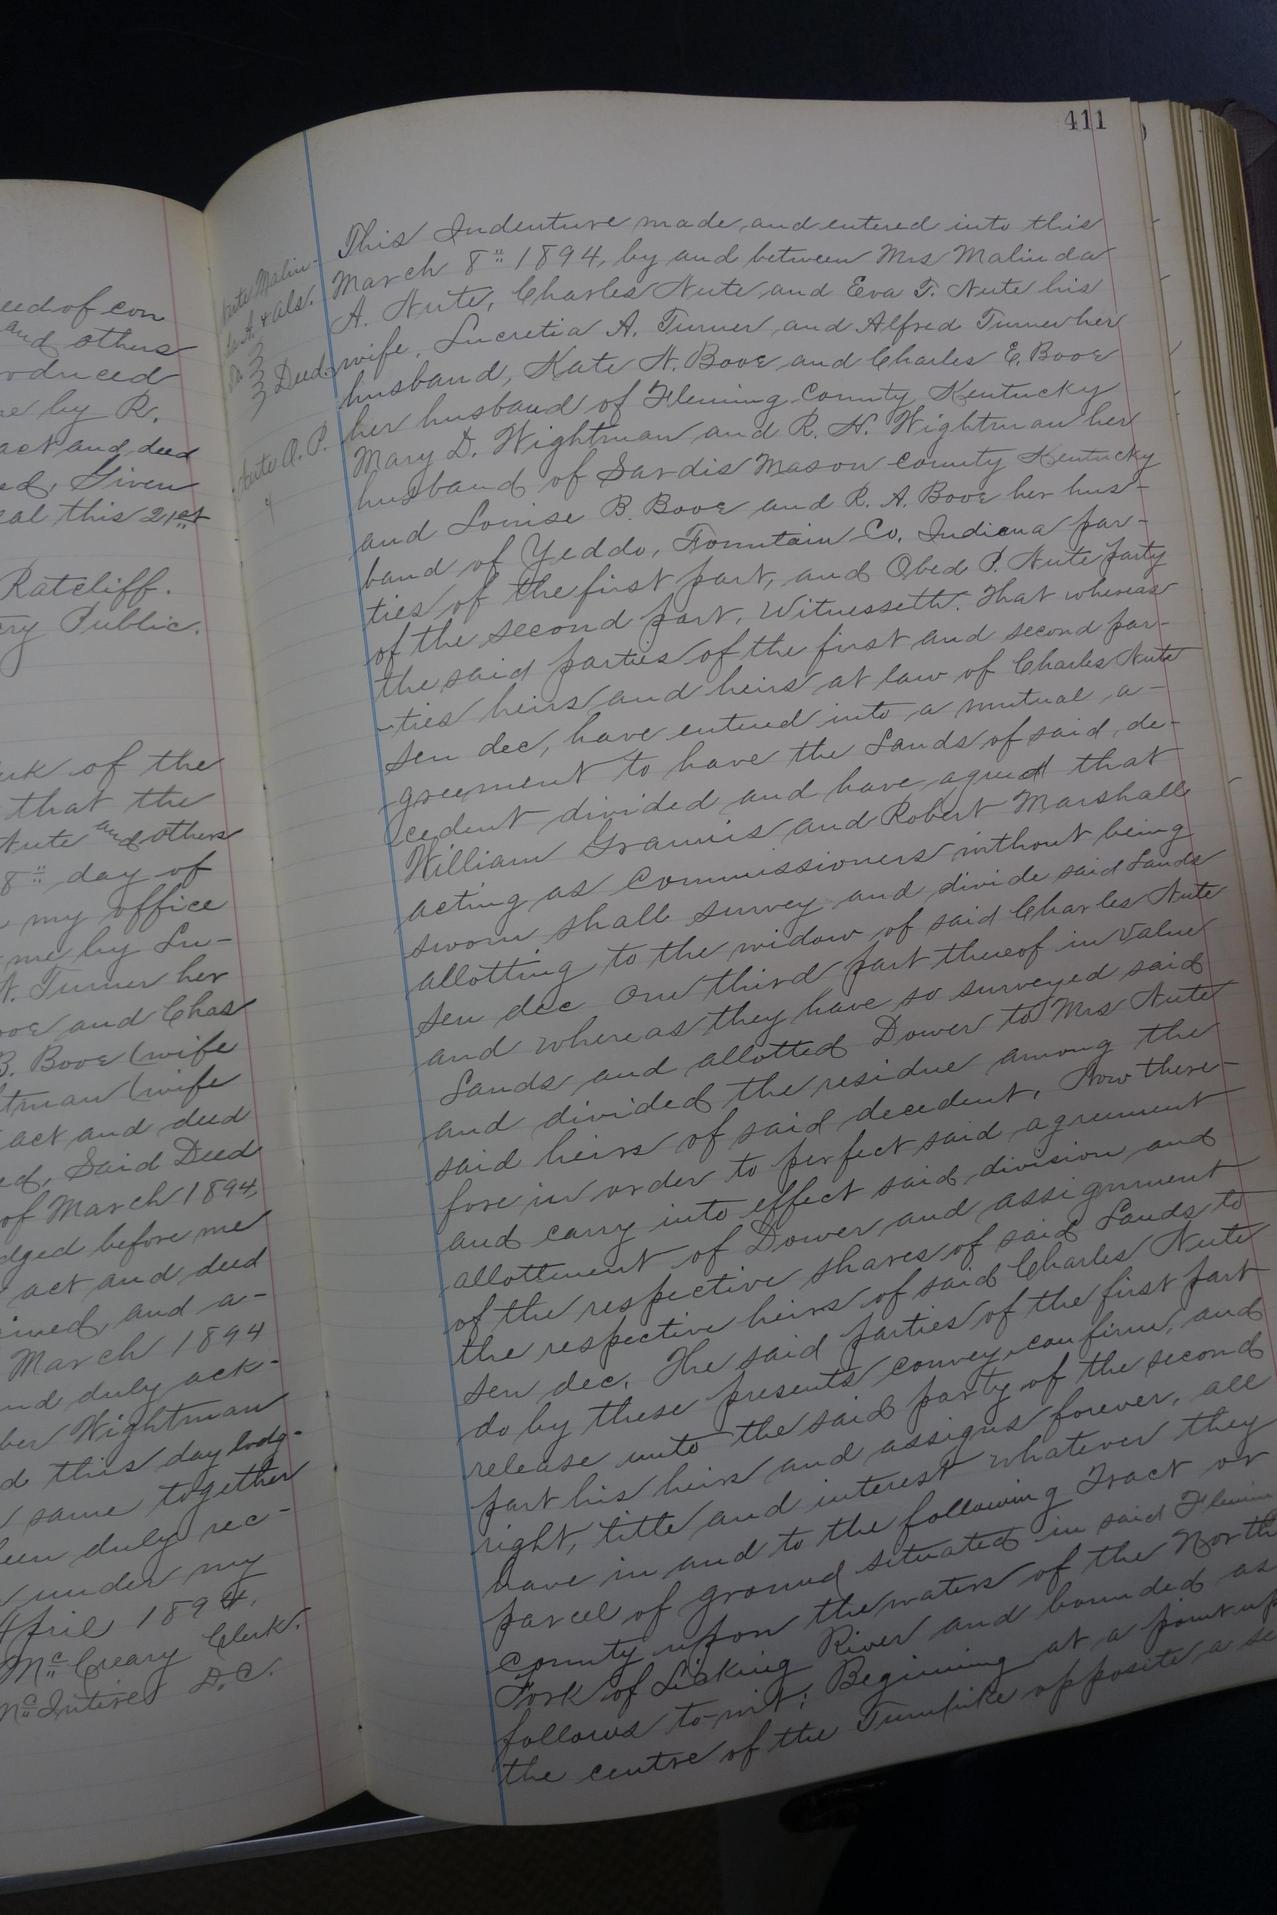 eed of con
and others
roduced
me by R.
act and deed
ed, Given
eal this 21st
Ratcliff.
ry Public.
rk of the
that the
Nute and others
8" day of
my office
me by Lu-
A. Turner her
Booe and Chas
B. Booe (wife
tman (wife
act and deed
ed, Said Deed
of March 1894,
dged before me
act and deed
ined, and a-
March 1894
nd duly ack-
her Wightman
d this day lodg-
same together
een duly rec-
under my
April 1894.
McCreary Clerk.
McIntire D.C.
411
Nute Malin-
da A. & als.
To
Deed
Nute O. P.
This Indenture made and entered into this
March 8" 1894, by and between Mrs Malinda
A. Nute, Charles Nute and Eva T. Nute his
wife, Lucretia A. Turner and Alfred Turner her
husband, Kate N. Booe and Charles E. Booe
her husband of Fleming County Kentucky
Mary D. Wightman and R. H. Wightman her
husband of Sardis Mason County Kentucky
and Louise B. Booe and R. A. Booe her hus-
band of Yeddo, Fountain Co. Indiana par-
ties of the first part, and Obed P. Nute party
of the second part, Witnesseth. That whereas
the said parties of the first and second par-
-ties heirs and heirs at law of Charles Nute
sen dec, have entered into a mutual a-
greement to have the Lands of said, de-
cedent divided and have agreed that
William Grannis and Robert Marshall
acting as Commissioners without being
sworn shall survey and divide said Lands
allotting to the widow of said Charles Nute
sen dec One third part thereof in Value
and whereas they have so surveyed said
Lands and allotted Dower to Mrs Nute
and divided the residue among the
said heirs of said decedent, Now there-
fore in order to perfect said agreement
and carry into effect said division and
allottment of Dower and assignment
of the respective shares of said Lands to
the respective heirs of said Charles Nute
sen dec. The said parties of the first part
do by these presents convey, confirm, and
release unto the said party of the second
part his heirs and assigns forever, all
right, title and interest whatever they
have in and to the following Tract or
parcel of ground situated in said Flemin
County upon the waters of the North
Fork of Licking River and bounded as
follows to-wit: Beginning at a point up
the centre of the Turnpike opposite a se